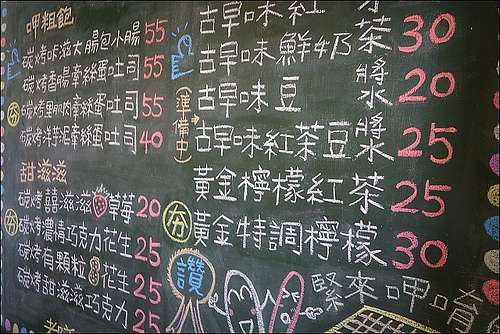 呷粗飽
碳烤咔滋大腸包小腸 55
碳烤香腸摩絲蛋吐司 55
夯 碳烤里肌肉摩絲蛋吐司 55
碳烤洋芋泥摩絲蛋吐司 40
甜滋滋
碳烤囍滋滋草莓 20
夯 碳烤濃情巧克力花生 25
碳烤有顆粒花生 25
碳烤甜滋滋巧克力 25
古早味紅茶
古早味鮮奶茶 30
古早味豆漿水 20
(準備中) 古早味紅茶豆漿 25
黃金檸檬紅茶 25
夯 黃金特調檸檬 30
讚
緊來呷看